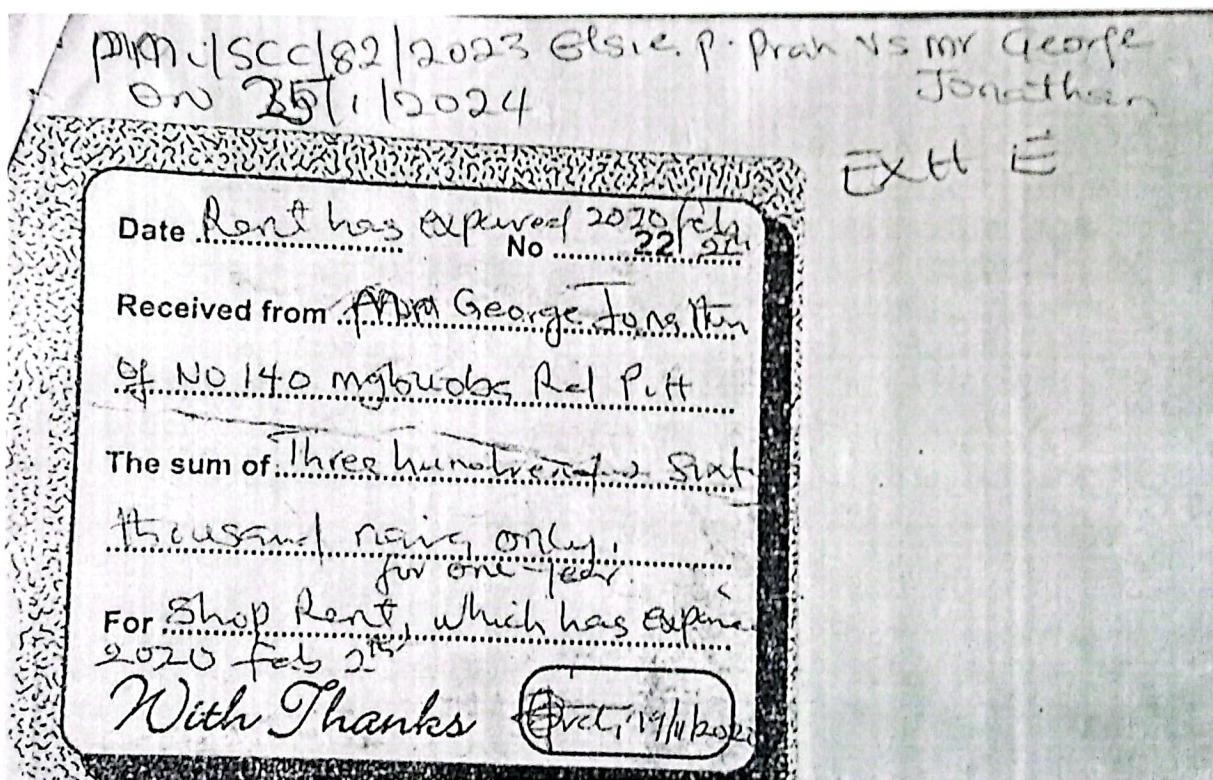 PMC/SCC/82/2023 Elsie. P. Prah Vs mr George
Jonathan
ON 25/1/2024
EXH E
Date Rent has expured 2020 feb
No 22 2th
Received from George Jonathn
of No 140 mgbuoba Rd P.H
The sum of Three hundred Sixt
thousand naira only.
for one-year
For Shop Rent, which has
2020 feb 2th
With Thanks 19/11/202